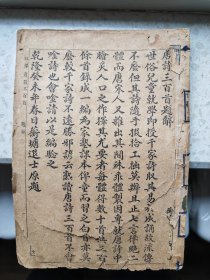 唐詩三百首題辭
世俗兒童就學即授千家詩取其易於成誦故流傳
不廢但其詩隨手掇拾工拙莫辨且止五七言律絕二
體而唐宋人又雜出其間殊乖體製因專就唐詩中
膾炙人口之作擇其尤要者每體得數十首共三百餘
首錄成一編為家塾課本俾童而習之白首亦莫能
廢較千家詩不遠勝耶諺云熟讀唐詩三百首不會
唫詩也會唫請以是編驗之
乾隆癸未年春日蘅塘退士原題